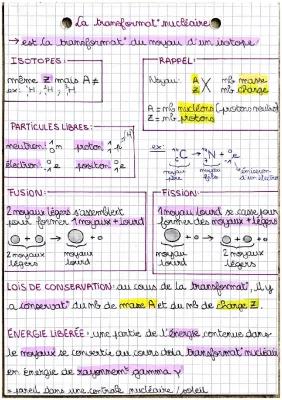 La transformat° nucléaire
→ est la transformat° du noyau d'un isotope
ISOTOPES:
même Z mais A ≠
ex: ¹H, ²H, ³H
RAPPEL:
Noyau: A Z X nb masse
nb charge
A = nb nucléons (protons neutrons)
Z = nb protons
PARTICULES LIBRES:
neutron: ¹₀n proton ¹₁p
électron: ⁰₋₁e positon ⁰₁e
ex: C → N + e
noyau père noyau fils
émission d'un électron
FUSION:
2 noyaux légers s'assemblent
pour former 1 noyau + lourd
2 noyaux légers noyau lourd
FISSION:
1 noyau lourd se casse pour
former des noyaux + légers
noyau lourd 2 noyaux légers
LOIS DE CONSERVATION: au cours de la transformat°, il y
a conservat° du nb de masse A et du nb de charge Z.
ÉNERGIE LIBÉRÉE: une partie de l'énergie contenue dans
le noyau se convertit au cours de la transformat° nucléaire
en énergie de rayonnement gamma γ
= pareil dans une centrale nucléaire / soleil